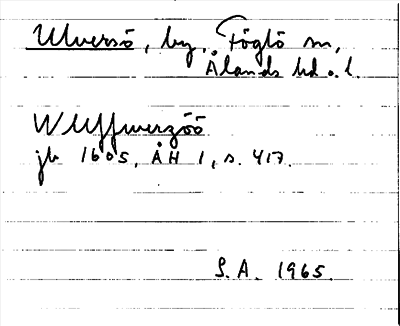 Ulversö, by, Föglö sn,
Ålands hd o. l.
Wllffwerzöö
jb 1605, ÅH 1, s. 417.
S.A. 1965.